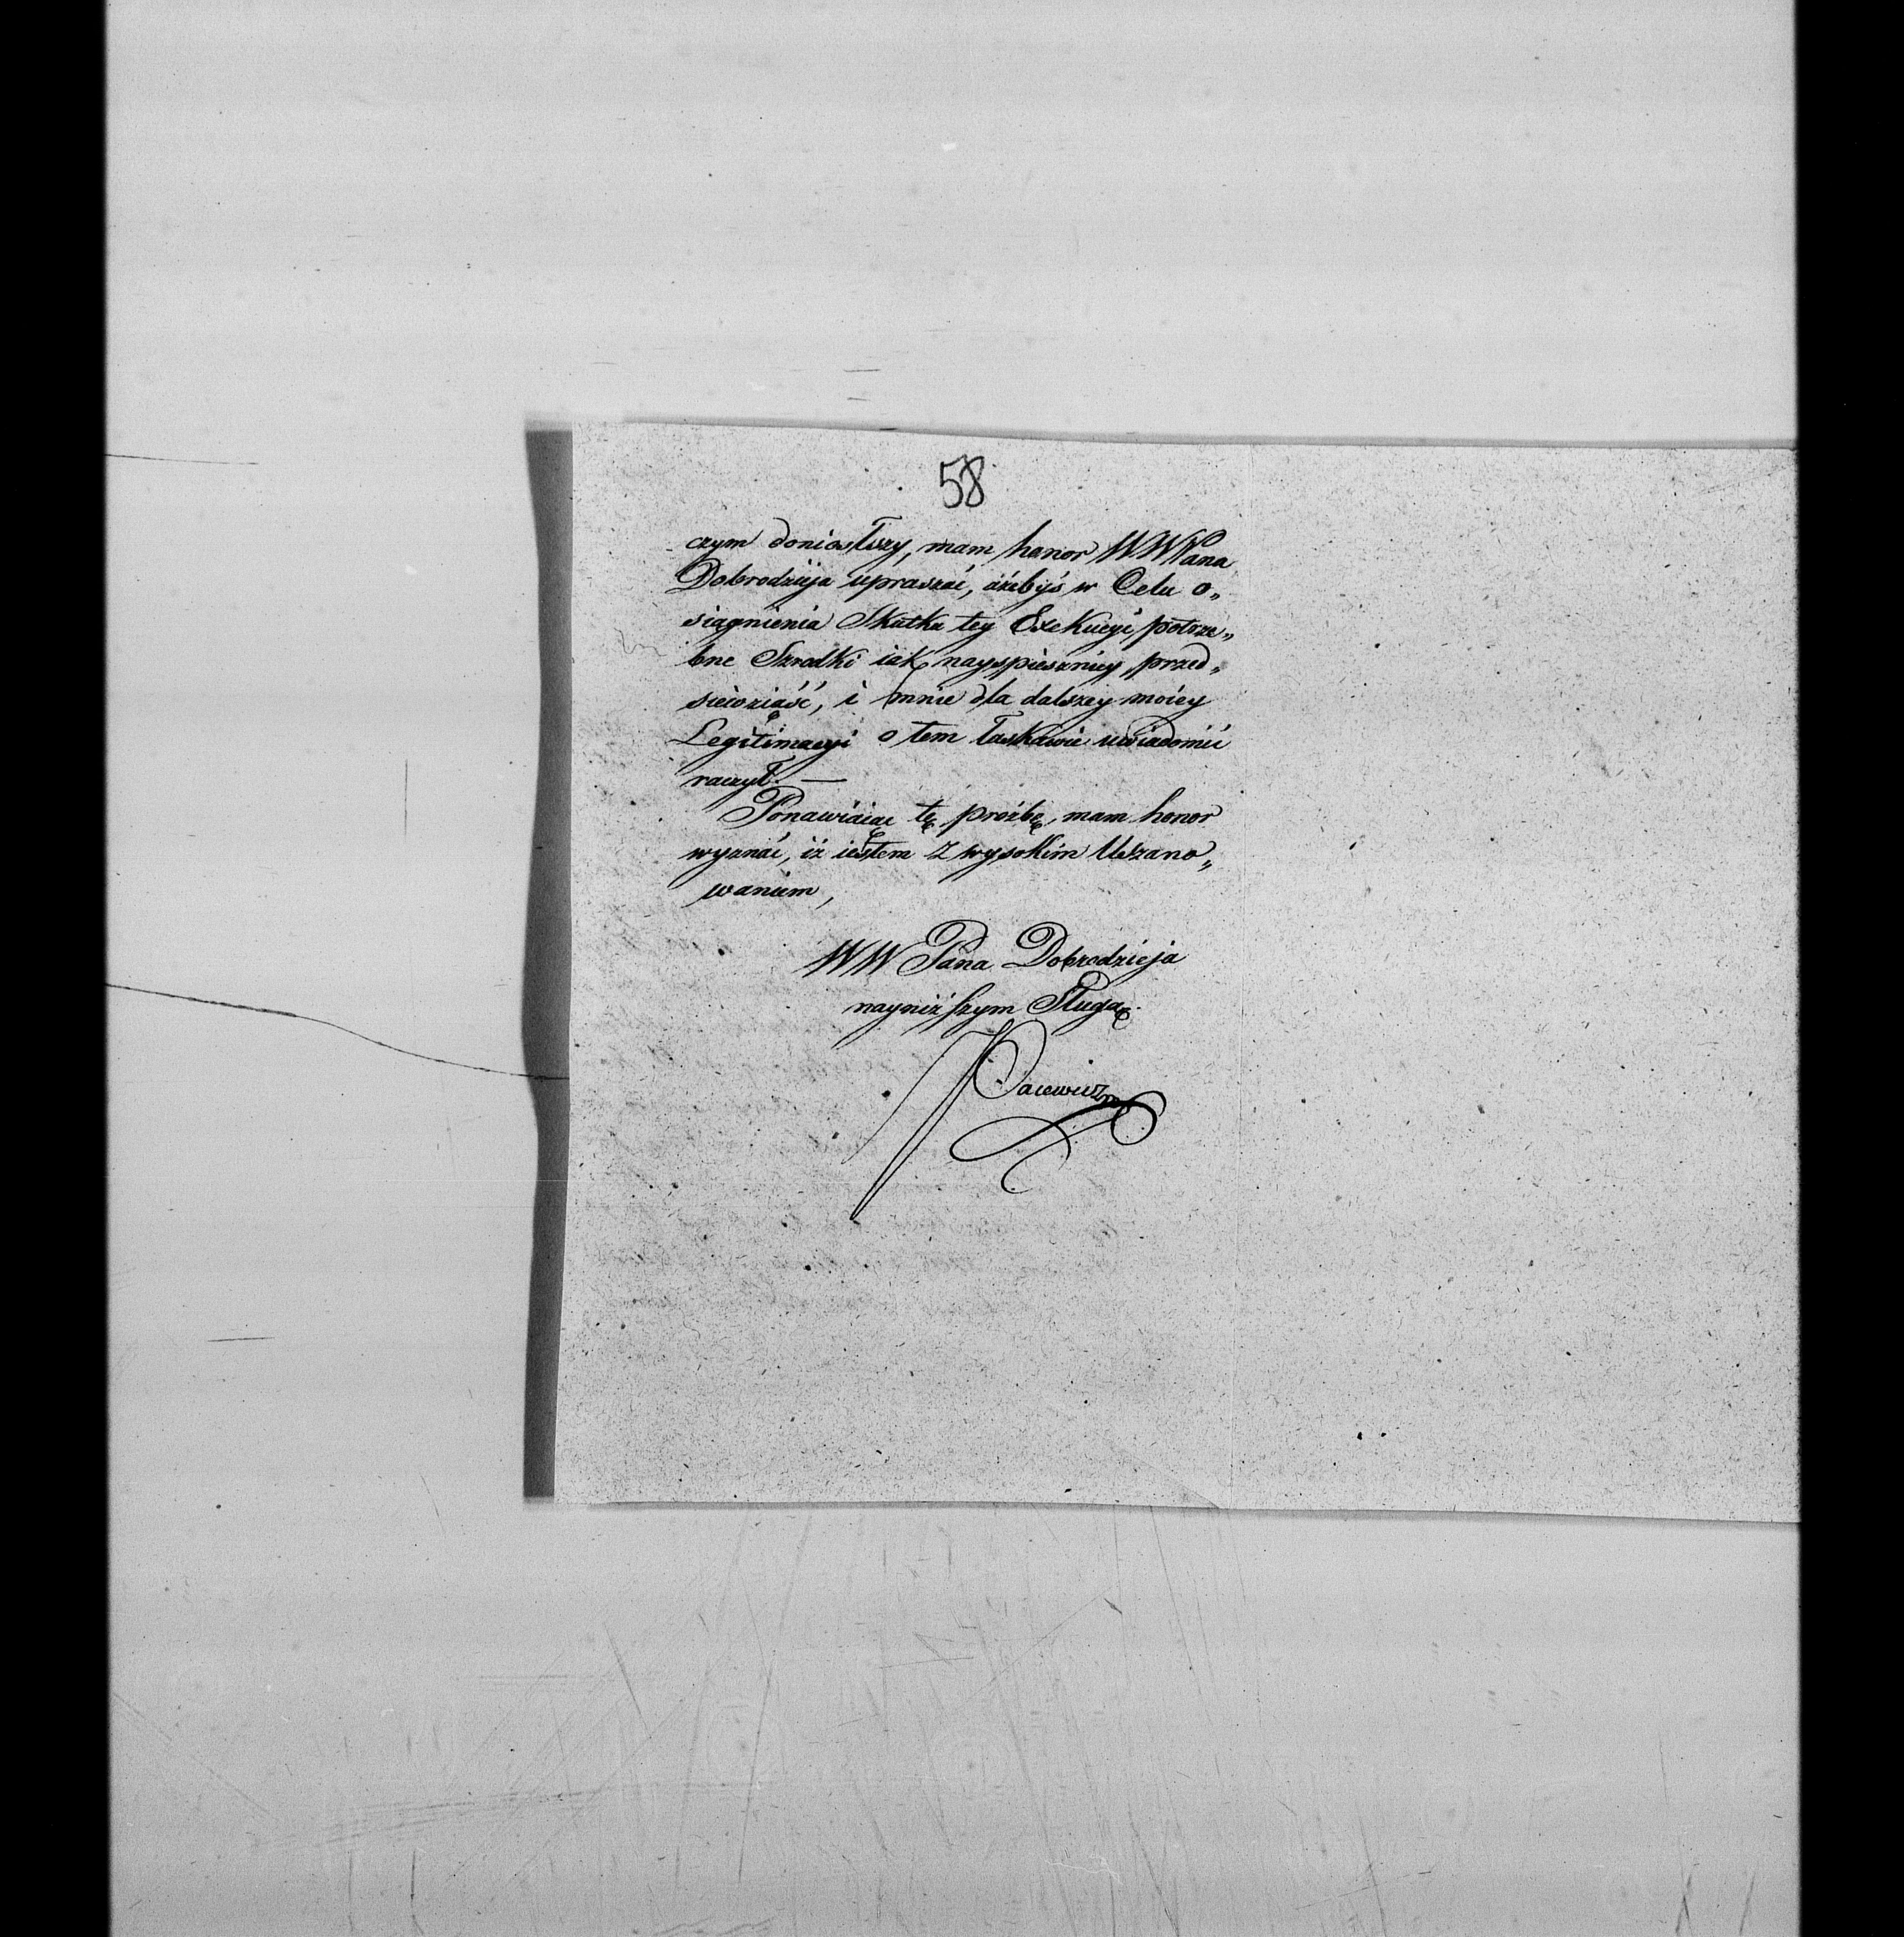 58
czym doniosłszy, mam honor WWPana
Dobrodzieja upraszać, ażebyś w Celu o„
siągnienia Skutku tey Exekucyi potrze„
bne Szrodki iak nayspieszniey przed„
sięwziąść, i mnie dla dalszey moiey
Legitimacyi o tem łaskawie uwiadomić
raczył. —
Ponawiaiąc tę proźbę, mam honor
wyznać, iż iestem z wysokim Uszano„
waniem,
WW Pana Dobrodzieja
nayniższym Sługą.